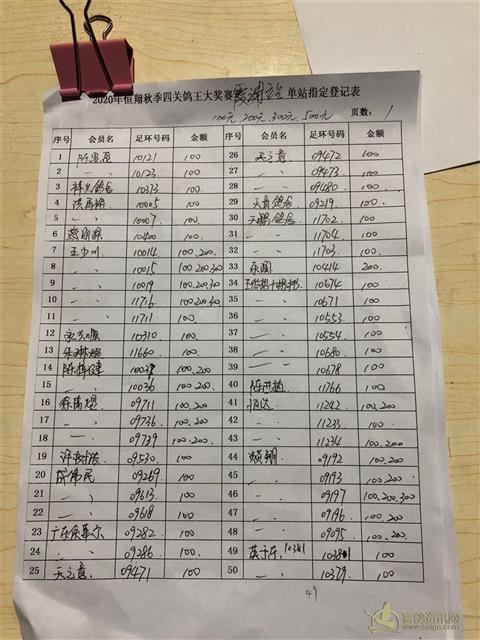 2020年恒翔秋季四关鸽王大奖赛霞浦站单站指定登记表
100元、200元、300元、500元
页数：1
序号 会员名 足环号码 金额 序号 会员名 足环号码 金额
1 10121 100 26 天之意 09472 100
2 〃 10123 100 27 〃 09473 100
3 祥兴鸽舍 10373 100 28 〃 09480 100
4 10005 100 29 天音鸽舍 09219 100
5 〃 10007 100 30 天鹏鸽舍 11702 100
6 10400 100 31 〃 11704 100
7 王少川 10014 100.200 32 〃 11703 100
8 〃 10015 100.200.300 33 10414 200
9 〃 10019 100.200.300 34 10674 100
10 〃 11716 100.200.300 35 〃 10671 100
11 〃 11711 100 36 〃 10553 100
12 10310 100 37 〃 10554 100
13 11660 100 38 〃 10680 100
14 10038 100.200 39 〃 10678 100
15 〃 10036 100.200 40 11766 100
16 09711 100.200 41 恒达 11242 100.200
17 〃 09736 100.200 42 〃 11233 100
18 〃 09739 100.200 43 〃 11234 100.200
19 09530 100 44 09192 100.200
20 09269 100 45 〃 09193 100.200
21 〃 09613 100 46 〃 09197 100.200.300
22 〃 09618 100 47 〃 09196 100.200
23 09282 100 48 〃 09095 100.200
24 〃 09286 100 49 10381 100
25 天之意 09471 100 50 〃 10379 100
49
赛鸽资讯网
www.saige.com